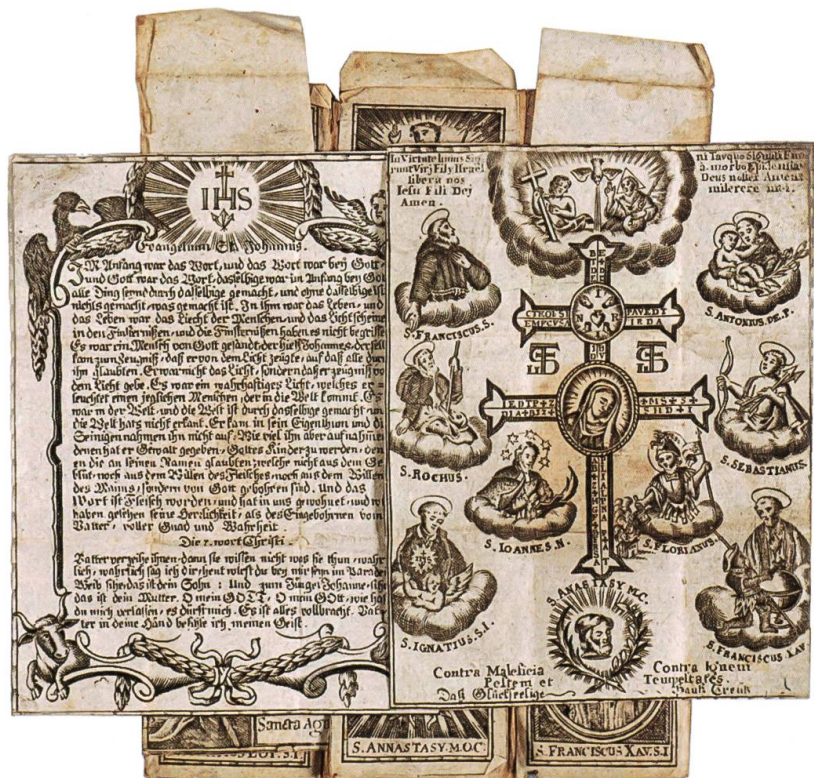 IHS
Evangelium St. Johannis.
IM Anfang war das Wort, und das Wort war bey Gott
und Gott war das Wort, dasselbige war in Anfang bey Gott
alle Ding seynd durch dasselbige gemacht, und ohne dasselbige ist
nichts gemacht, was gemacht ist. In ihm war das Leben, und
das Leben war das Liecht der Menschen, und das Licht scheinet
in den Finsternissen, und die Finsternüßen haben es nicht begriffe
Es war ein Mensch von Gott gesandt, der hieß Johannes, der selb
kam zum Zeugniß, daß er von dem Licht zeugte, auf daß alle durch
ihn glaubten. Er war nicht das Licht, sondern daß er zeugniß vo
dem Licht gebe. Es war ein wahrhaftiges Licht, welches er=
leuchtet einen jeglichen Menschen, der in die Welt kommt. Es
war in der Welt, und die Welt ist durch dasselbige gemacht, un
die Welt hats nicht erkant. Er kam in sein Eigenthum und di
Seinigen nahmen ihn nicht auf. Wie viel ihn aber aufnahmen
denen hat er Gewalt gegeben, Gottes Kinder zu werden, den
en die an seinen Namen glaubten, welche nicht aus dem Ge
blüt, noch aus dem Willen des Fleisches, noch aus dem Willen
des Manns, sondern von Gott gebohren sind. Und das
Wort ist Fleisch worden, und hat in uns gewohnet, und wir
haben gesehen seine Herrlichkeit, als des Eingebohrnen vom
Vatter, voller Gnad und Wahrheit.
Die 7. wort Christi.
Vatter verzeihe ihnen, dann sie wissen nicht was sie thun, wahr
lich, wahrlich sag ich dir, heut wirst du bey mir seyn im Parade
Weib sihe, das ist dein Sohn: Und zum Jünger Johanne, sihe
das ist dein Mutter. O mein GOTT, O mein GOtt, wie hast
du mich verlassen, es dürst mich. Es ist alles vollbracht. Vat=
ter in deine Händ befihle ich meinen Geist.
In Virtute huius Sig
runt Virj Filj Israel
libera nos
Iesu Fili Dej
Amen.
ni Tau quo Signati Fue
à morbo Epidemiae
Deus noster Amen
miserere
I
N R
S. FRANCISCUS. S.
S. ANTONIUS. DE. P.
S. ROCHUS.
S. SEBASTIANUS.
S. IOANNES. N.
S. FLORIANUS.
S. IGNATIUS. S. I.
S. FRANCISCUS XAV
S. ANASTASY M. C.
Contra Maleficia
Pestem et
Daß Glückseelige
Contra Ignem
Tempestates.
Hauß Creutz
Sancta Ag
S. ANNASTASY. M. O. C.
S. FRANCISCUS XAV. S. I